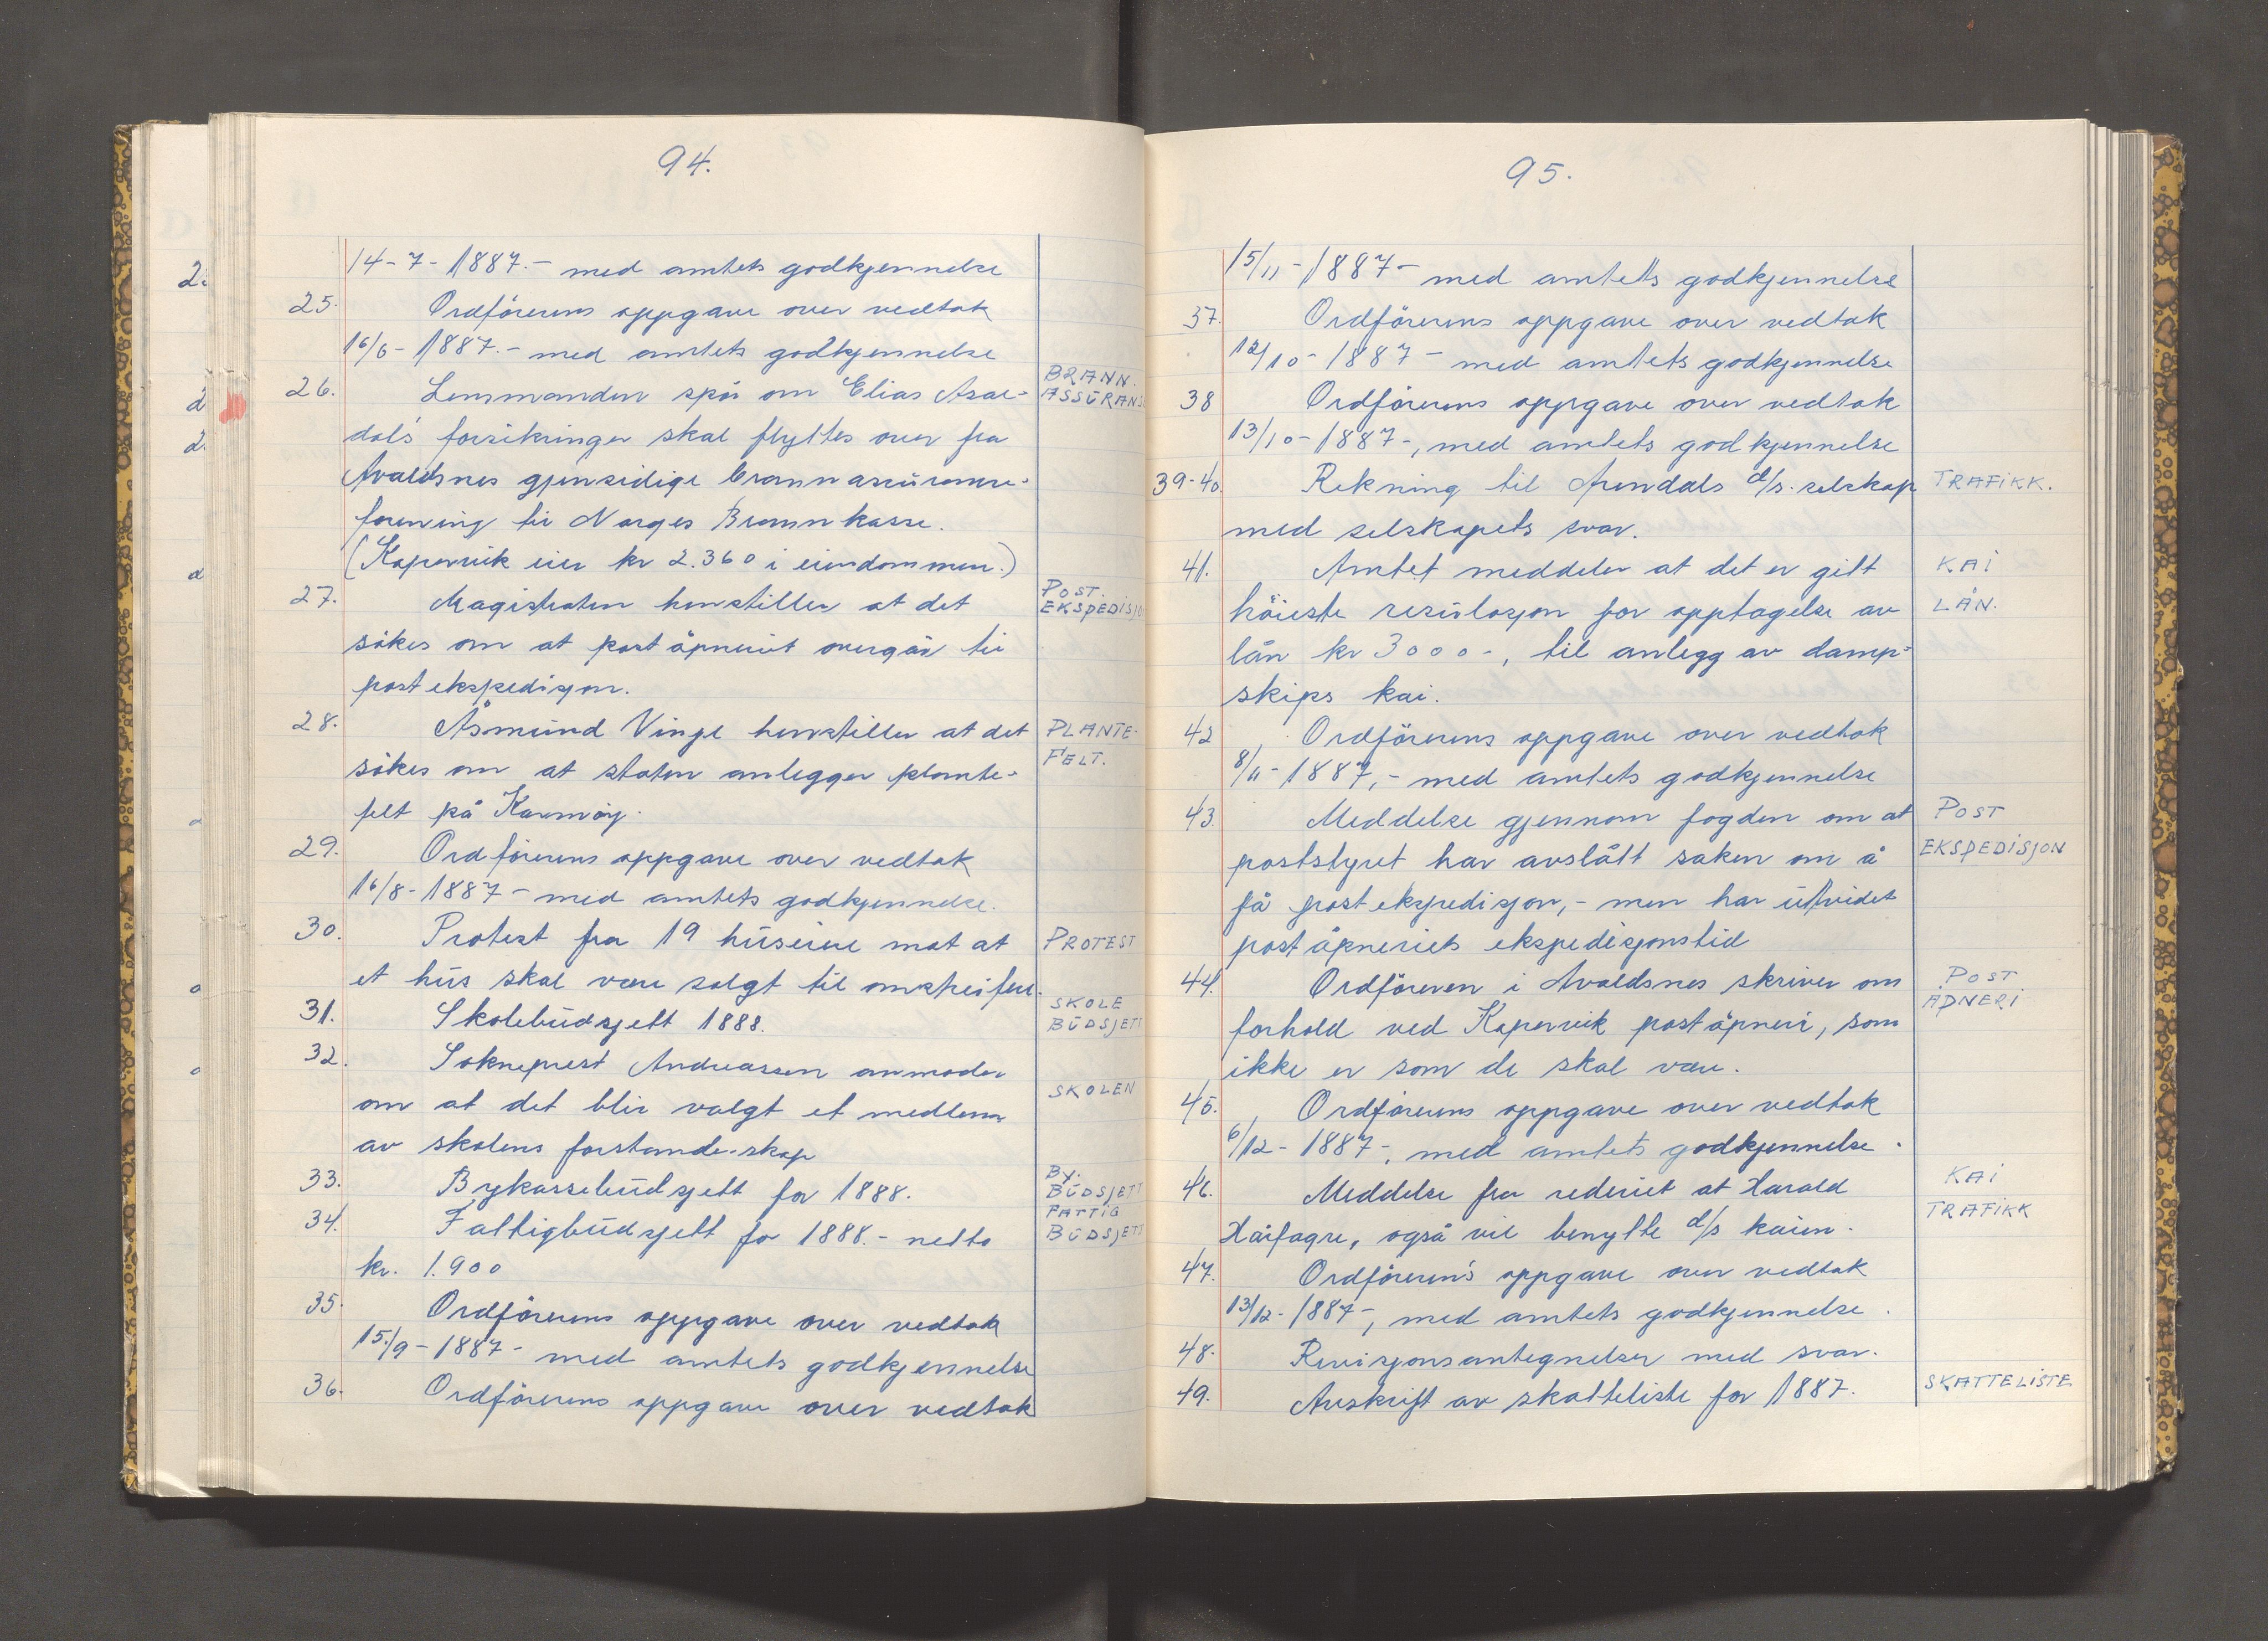 94.
14-7-1887.- med amtets godkjennelse
25. Ordförerens oppgave over vedtak
16/6-1887.- med amtets godkjennelse
26. Lensmanden spör om Elias Asal-
BRANN.
ASSÜRANS
dals forsikringer skal flyttes over fra
Avaldsnes gjensidige brannassüranse-
forening til Norges Brannkasse.
(Kopervik eier kr 2.360 i eiendommen.)
27. Magistraten henstiller at det
POST.
EKSPEDISJO
sökes om at poståpneriet overgår til
postekspedisjon.
28. Åsmünd Vinje henstiller at det
PLANTE-
sökes om at staten anlegger plante-
FELT.
felt på Karmöy.
29. Ordförerens oppgave over vedtak
16/8-1887- med amtets godkjennelse.
30. Protest fra 19 hüseiere mot at
PROTEST
et hüs skal være solgt til omstreifere.
31. Skolebüdsjett 1888.
SKOLE
BÜDSJETT
32. Sokneprest Andreassen anmoder
SKOLEN
om at det blir valgt et medlem
av skolens forstanderskap
33. Bykassebüdsjett for 1888.
BY.
BÜDSJETT
34. Fattigbüdsjett for 1888.- netto
FATTIG
BÜDSJETT
kr. 1.900
35. Ordförerens oppgave over vedtak
15/9-1887- med amtets godkjennelse
36. Ordförerens oppgave over vedtak
95.
15/11-1887- med amtets godkjennelse
37. Ordförerens oppgave over vedtak
12/10-1887- med amtets godkjennelse
38 Ordförerens oppgave over vedtak
13/10-1887-, med amtets godkjennelse
39-40. Rekning til Arendals d/s. selskap
TRAFIKK.
med selskapets svar.
41. Amtet meddeler at det er gitt
KAI
höieste resülosjon for opptagelse av
LÅN.
lån kr 3000-, til anlegg av damp-
skips kai.
42 Ordförerens oppgave over vedtak
8/11-1887,- med amtets godkjennelse
43. Meddelse gjennom fogden om at
POST
poststyret har avslått saken om å
EKSPEDISJON
få postekspedisjon,- men har ütvidet
poståpneriets ekspedisjonstid
44. Ordföreren i Avaldsnes skriver om
POST
ÅPNERI
forhold ved Kopervik poståpneri, som
ikke er som de skal være.
45. Ordförerens oppgave over vedtak
6/12-1887-, med amtets godkjennelse.
46. Meddelse fra rederiet at Harald
KAI
Hårfagre, også vil benytte d/s kaien.
TRAFIKK
47. Ordförerens oppgave over vedtak
13/12-1887-, med amtets godkjennelse.
48. Revisjonsantegnelser med svar.
49. Avskrift av skatteliste for 1887.
SKATTELISTE